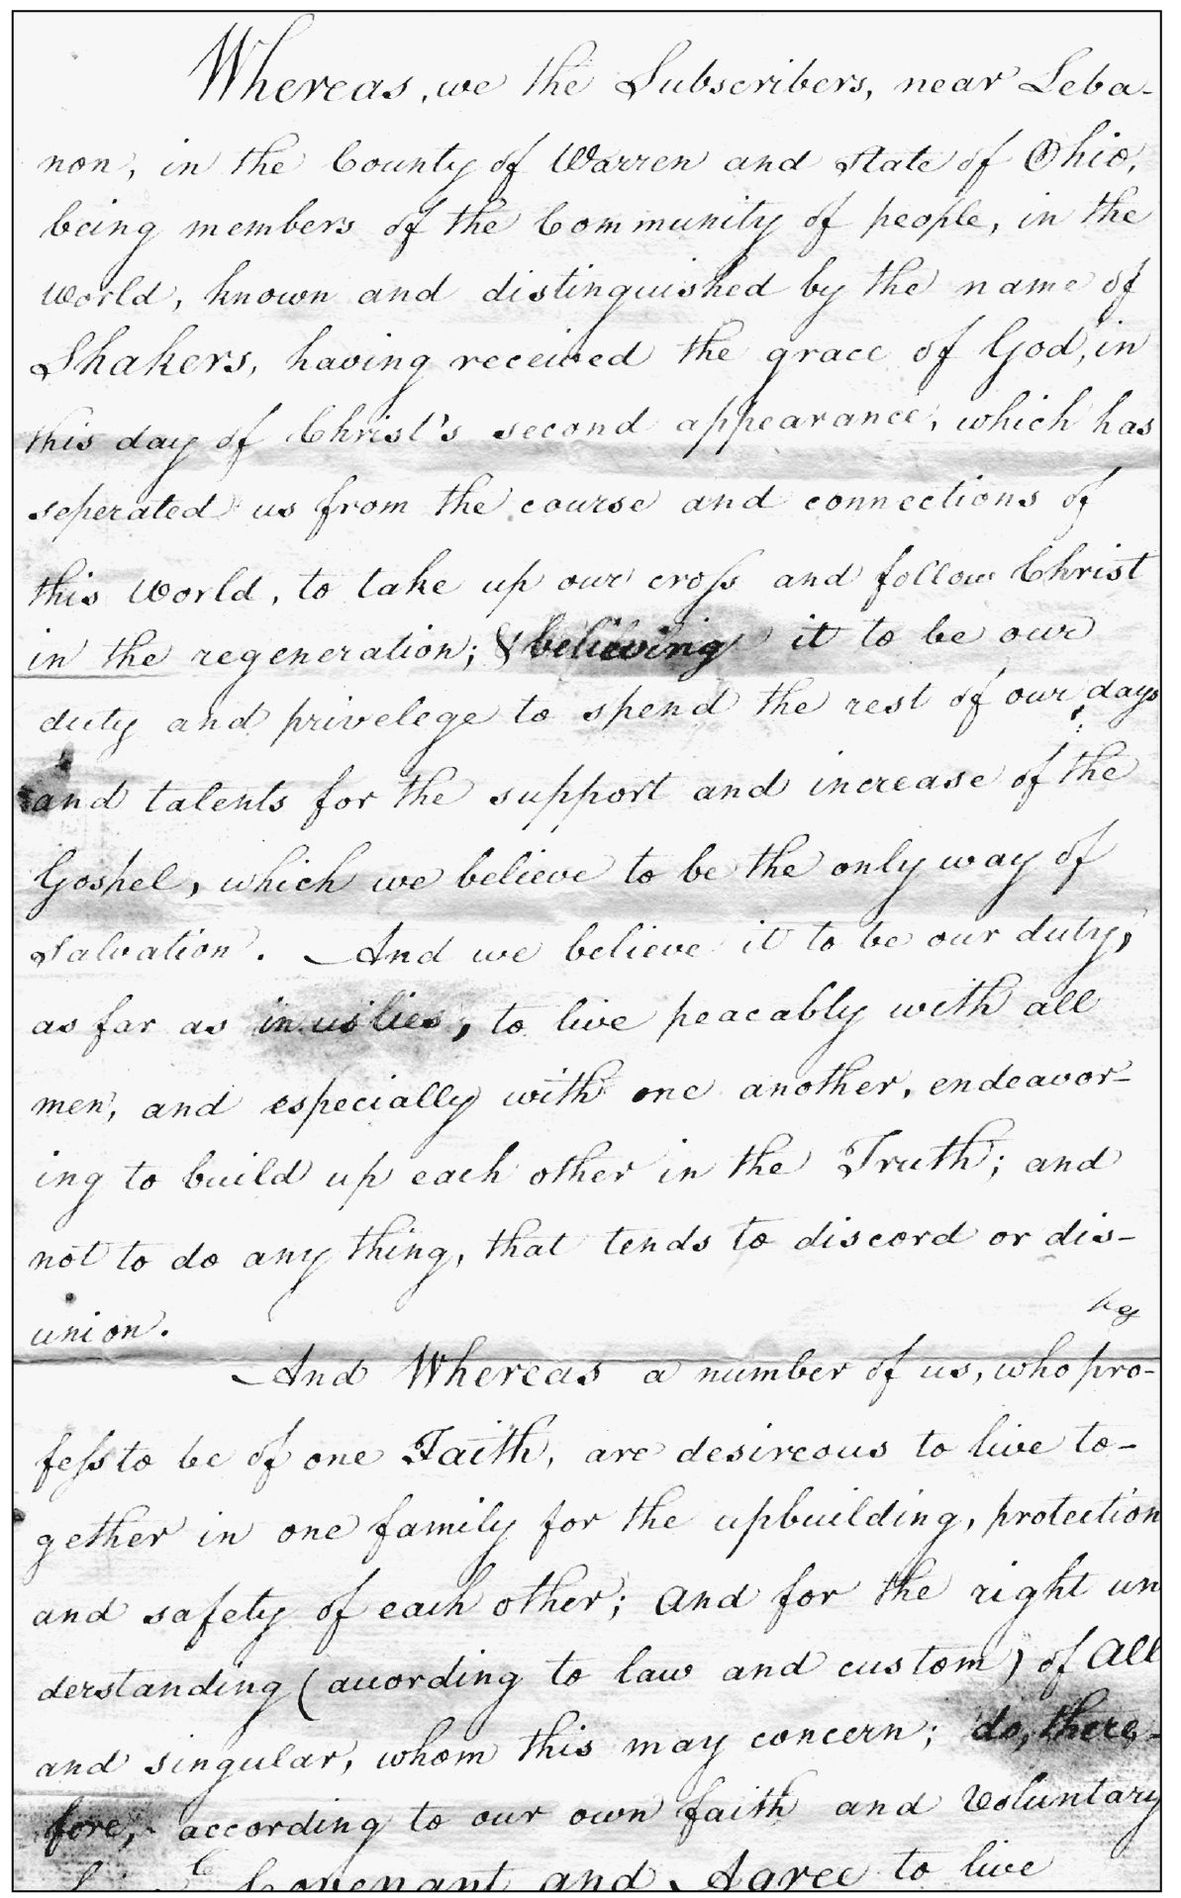 Whereas, we the Subscribers, near Leba-
non, in the County of Warren and State of Ohio,
being members of the Community of people, in the
World, known and distinguished by the name of
Shakers, having received the grace of God, in
this day of Christ's second appearance, which has
seperated us from the course and connections of
this World, to take up our cross and follow Christ
in the regeneration; & believing it to be our
duty and privelege to spend the rest of our days
and talents for the support and increase of the
Gospel, which we believe to be the only way of
Salvation. And we believe it to be our duty,
as far as in us lies, to live peacably with all
men, and especially with one another, endeavor-
ing to build up each other in the Truth; and
not to do any thing, that tends to discord or dis-
union.
And Whereas a number of us, who pro-
fess to be of one Faith, are desireous to live to-
gether in one family for the upbuilding, protection
and safety of each other; and for the right un
derstanding (according to law and custom) of All
and singular, whom this may concern; do, there-
fore, according to our own faith and Voluntary
Covenant and Agree to live